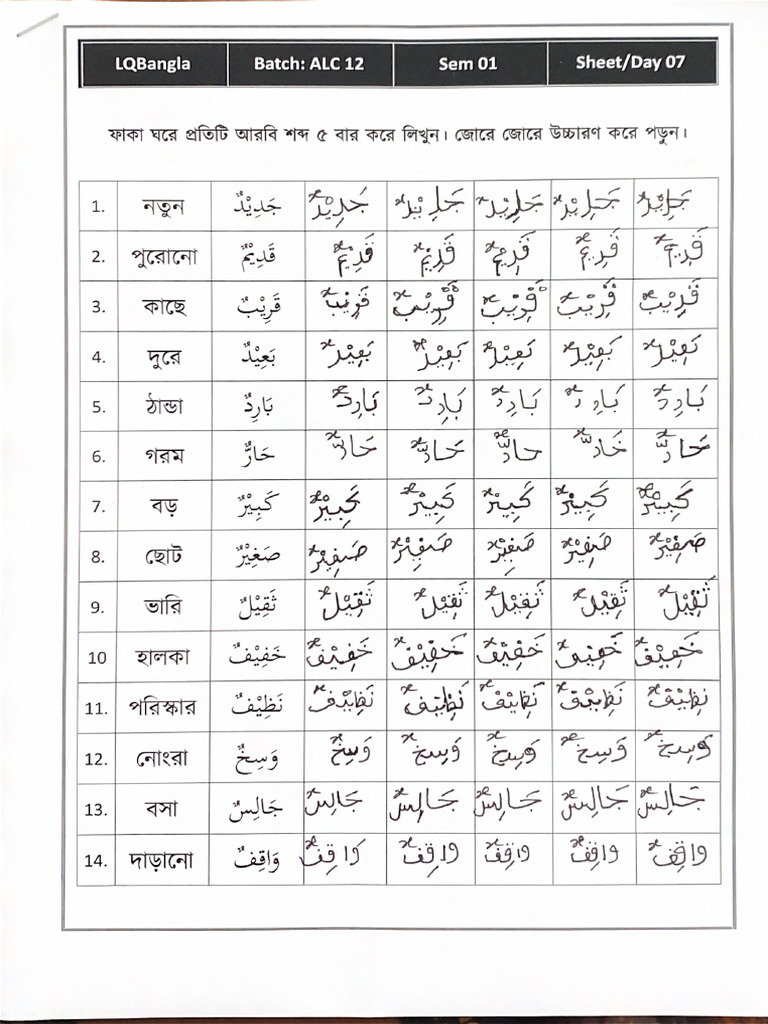 LQBangla Batch: ALC 12 Sem 01 Sheet/Day 07
ফাকা ঘরে প্রতিটি আরবি শব্দ ৫ বার করে লিখুন। জোরে জোরে উচ্চারণ করে পড়ুন।
1. নতুন جَدِيْدٌ جَدِيْدٌ جَدِيْدٌ جَدِيْدٌ جَدِيْدٌ جَدِيْدٌ
2. পুরোনো قَدِيْمٌ قَدِيْمٌ قَدِيْمٌ قَدِيْمٌ قَدِيْمٌ قَدِيْمٌ
3. কাছে قَرِيْبٌ قَرِيْبٌ قَرِيْبٌ قَرِيْبٌ قَرِيْبٌ قَرِيْبٌ
4. দুরে بَعِيْدٌ بَعِيْدٌ بَعِيْدٌ بَعِيْدٌ بَعِيْدٌ بَعِيْدٌ
5. ঠান্ডা بَارِدٌ بَارِدٌ بَارِدٌ بَارِدٌ بَارِدٌ بَارِدٌ
6. গরম حَارٌّ حَارٌّ حَارٌّ حَارٌّ حَارٌّ حَارٌّ
7. বড় كَبِيْرٌ كَبِيْرٌ كَبِيْرٌ كَبِيْرٌ كَبِيْرٌ كَبِيْرٌ
8. ছোট صَغِيْرٌ صَغِيْرٌ صَغِيْرٌ صَغِيْرٌ صَغِيْرٌ صَغِيْرٌ
9. ভারি ثَقِيْلٌ ثَقِيْلٌ ثَقِيْلٌ ثَقِيْلٌ ثَقِيْلٌ ثَقِيْلٌ
10 হালকা خَفِيْفٌ خَفِيْفٌ خَفِيْفٌ خَفِيْفٌ خَفِيْفٌ خَفِيْفٌ
11. পরিস্কার نَظِيْفٌ نَظِيْفٌ نَظِيْفٌ نَظِيْفٌ نَظِيْفٌ نَظِيْفٌ
12. নোংরা وَسِخٌ وَسِخٌ وَسِخٌ وَسِخٌ وَسِخٌ وَسِخٌ
13. বসা جَالِسٌ جَالِسٌ جَالِسٌ جَالِسٌ جَالِسٌ جَالِسٌ
14. দাড়ানো وَاقِفٌ وَاقِفٌ وَاقِفٌ وَاقِفٌ وَاقِفٌ وَاقِفٌ